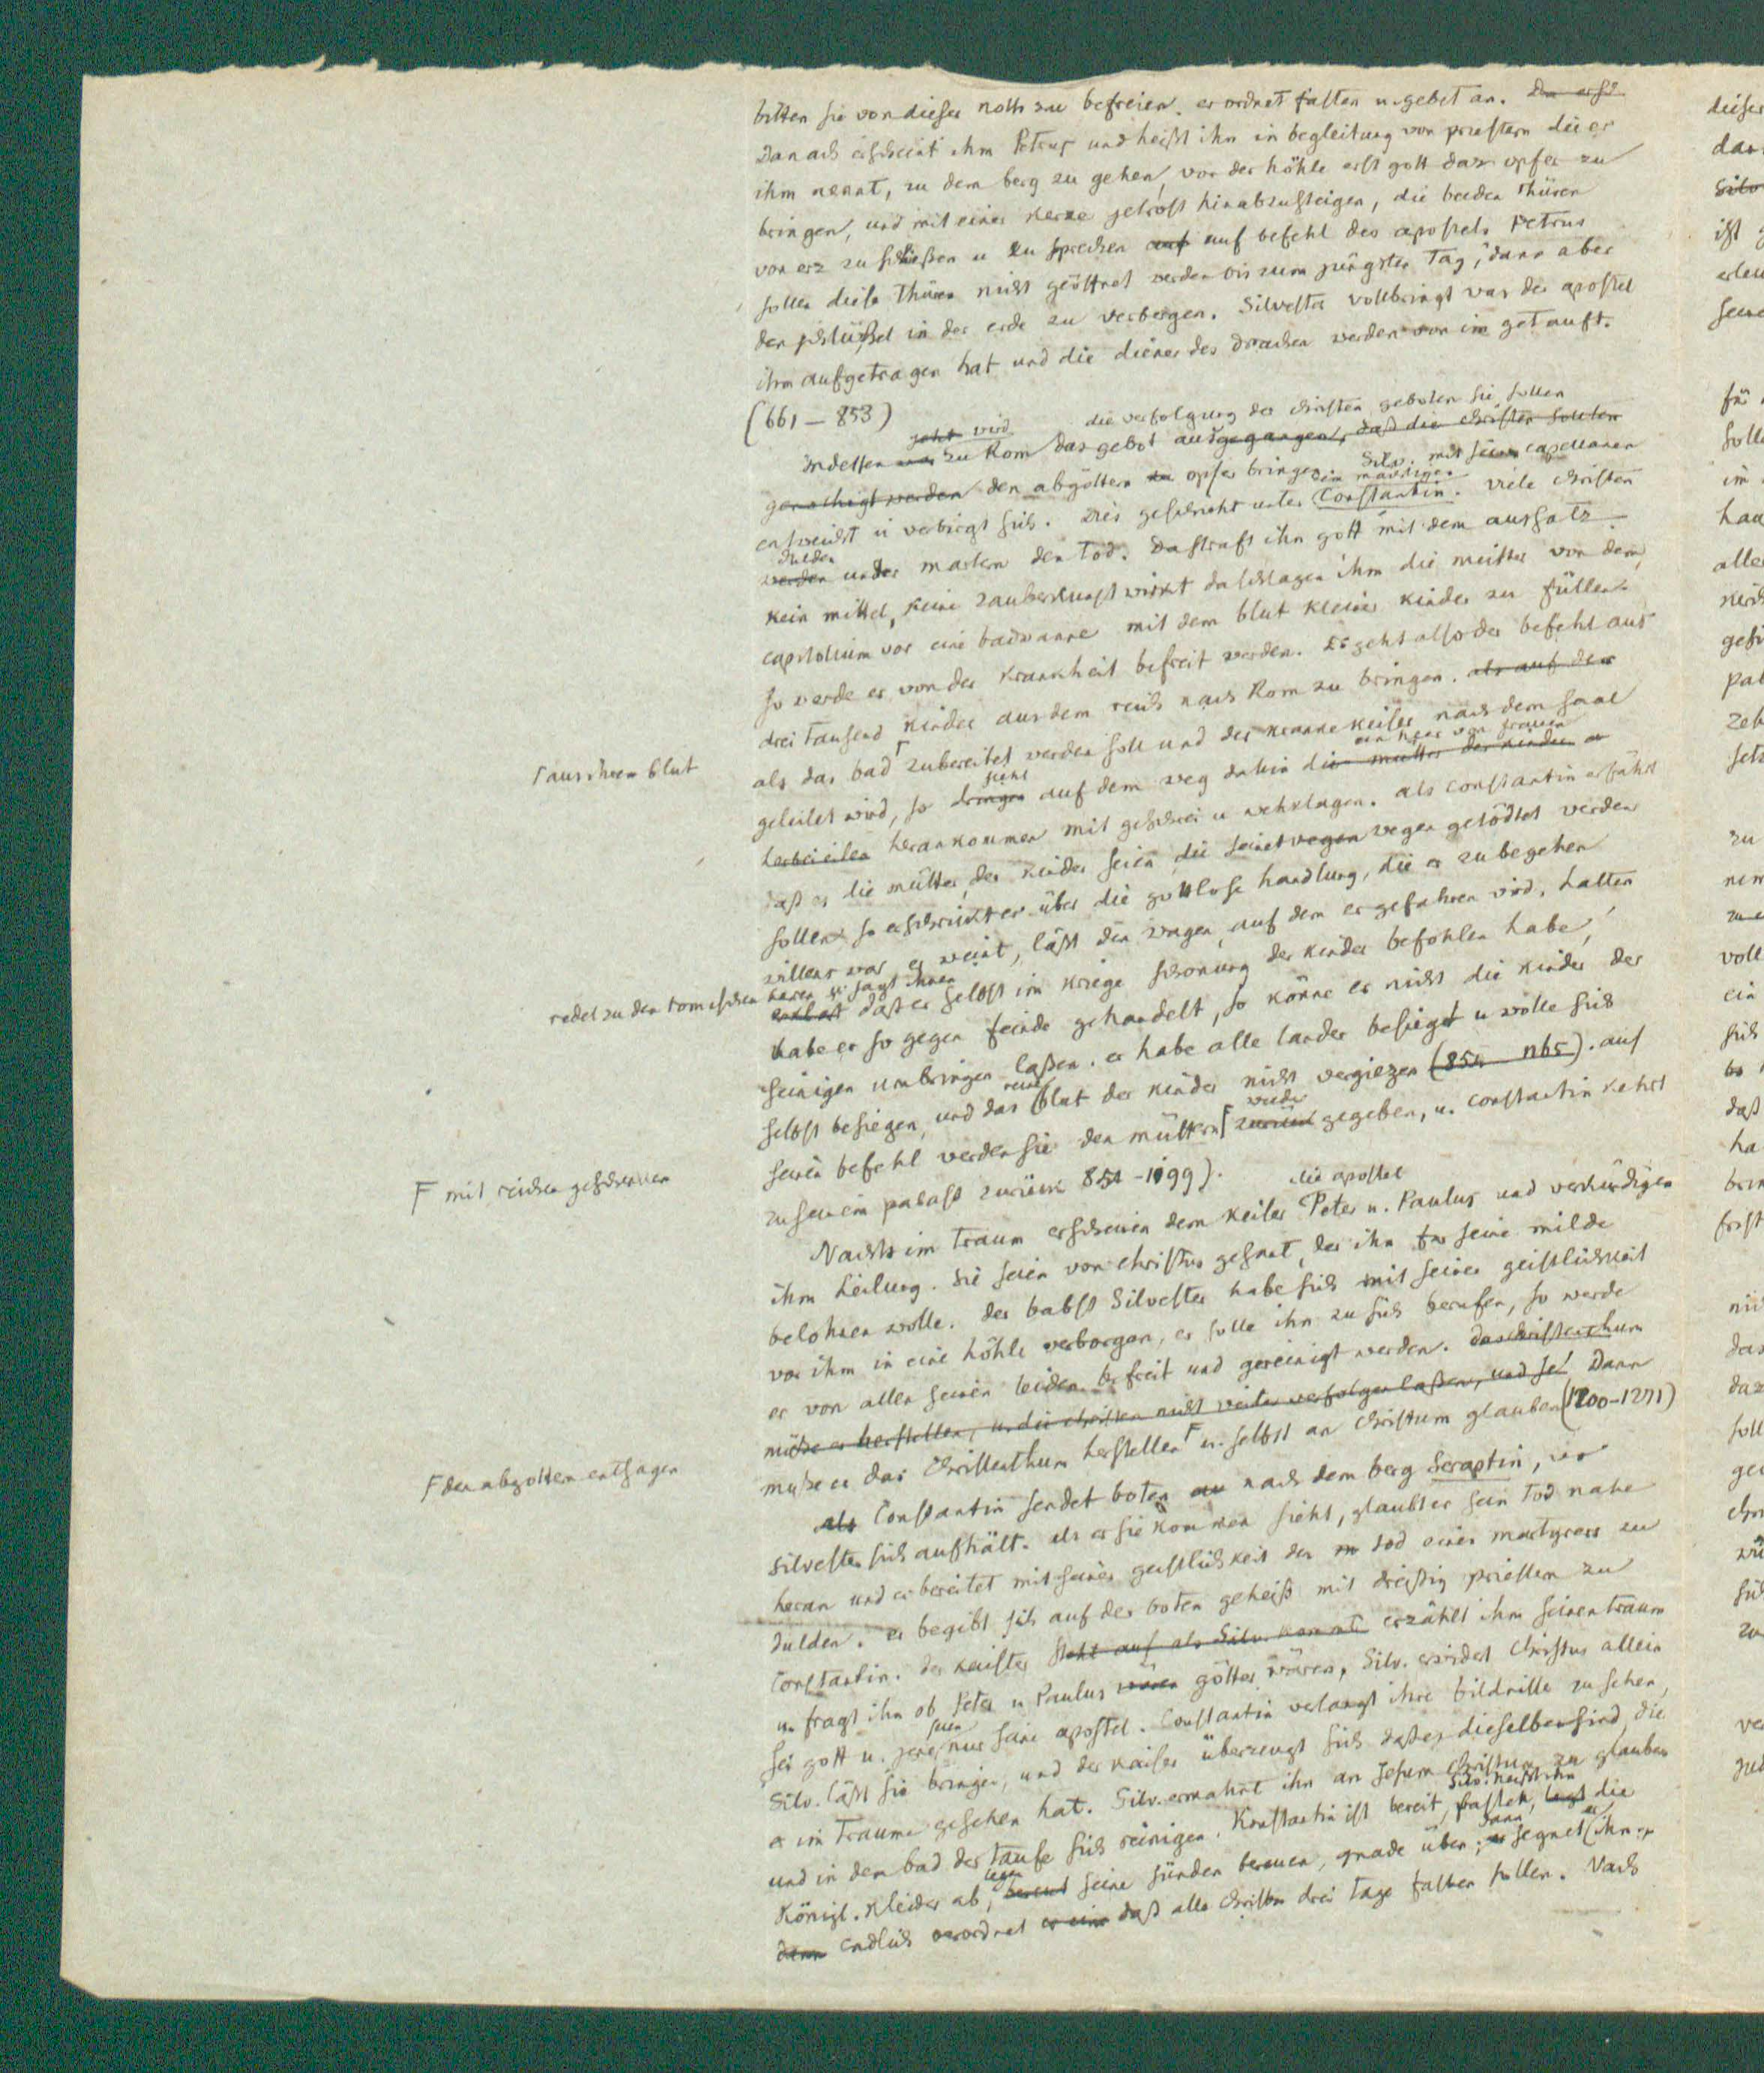 bitten sie von dieser noth zu befreien. er ordnet fasten u. gebet an. Da ersch
Danach erscheint ihm Petrus und heißt ihn in begleitung von priestern die er
ihm nennt, zu dem berg zu gehen, vor der höhle erst gott das opfer zu
bringen, und mit einer kerze getrost hinabzusteigen, die beiden thüren
von erz zu schließen u zu sprechen auf auf befehl des apostels Petrus
sollen diese thüren nicht geöffnet werden bis zum jüngsten Tag, dann aber
den schlüßel in der erde zu verbergen. Silvester vollbringt was der apostel
ihm aufgetragen hat und die diener des drachen werden von im getauft.
(661 – 853)
die verfolgung der christen geboten sie sollen
jetzt wird
Indessen war zu Rom das gebot ausgegangen, daß die christen sollten
Silv. mit seinen capellanen
genöthigt werden den abgöttern zu opfer bringen
dem mächtigen
entweicht u verbirgt sich. Dies geschieht unter Constantin. viele christen
dulden
werden unter martern den Tod. Da straft ihn gott mit dem aussatz.
kein mittel, keine zauberkunst wirkt da schlagen ihm die meister von dem
capitolium vor eine badwanne mit dem blut kleiner kinder zu füllen
so werde er von der krankheit befreit werden. Es geht also der befehl aus
drei tausend kinder aus dem reich nach Rom zu bringen. als auf dem
┌ aus ihrem blut
als das bad ┌ zubereitet werden soll und der kranke keiser nach dem saal
ein heer von frauen
sieht
geleitet wird, so dringen auf dem weg dahin die mütter der kinder er
herbei eilen herankommen mit geschrei u wehklagen. als Constantin erfährt
daß es die mütter der kinder seien, die seinetwegen wegen getödtet werden
sollen so erschrickt er über die gottlose handlung, die er zu begehen
willens war, er weint, läßt den wagen, auf dem er gefahren wird, halten
redet zu den römischen herren u. sagt ihnen
erklärt daß er selbst im kriege schonung der kinder befohlen habe,
habe er so gegen feinde gehandelt, so könne er nicht die kinder der
seinigen umbringen laßen. er habe alle länder besiegt u wolle sich
reine
selbst besiegen, und das blut der kinder nicht vergiezen (855 – 1165). auf
wieder
F mit reichen geschenken
seinen befehl werden sie den müttern F zurück gegeben, u. Constantin kehrt
zu seinem palast zurück 854 – 1199).
die apostel
Nachts im Traum erscheinen dem keiser Peter u. Paulus und verkündigen
ihm heilung. sie seien von christus gesant, der ihn für seine milde
belohnen wolle. der babst Silvester habe sich mit seiner geistlichkeit
vor ihm in eine höhle verborgen, er solle ihn zu sich berufen, so werde
er von allen seinen leiden befreit und gereinigt werden. das christenthum
müße er herstellen, u. die christen nicht weiter verfolgen laßen, und se Dann
F den abgöttern entsagen
müße er das Christenthum herstellen F u. selbst an Christum glauben (1200–1271)
als Constantin sendet boten au nach dem berg Seraptin, wo
Silvester sich aufhält. als er sie kommen sieht, glaubt er sein Tod nahe
heran und er bereitet mit seiner geistlichkeit den m tod eines martyrers zu
dulden. er begibt sich auf der boten geheiß mit dreißig priestern zu
Constantin. der kaiser steht auf als Silv. kommt erzählt ihm seinen traum
u. fragt ihn ob Peter u Paulus wären götter wären, Silv. erwidert Christus allein
seien
sei gott u. jene nur seine apostel. Constantin verlangt ihre bildnisse zu sehen,
Silv. läßt sie bringen, und der kaiser überzeugt sich daß es dieselben sind, die
er im Traume gesehen hat. Silv. ermahnt ihn an Jesum Christum zu glauben
Silv. heißt ihn
und in dem bad der taufe sich reinigen. Konstantin ist bereit, fasten, legt die
legen
dann
er
königl. kleider ab, bereut seine sünden bereuen, gnade üben; er segnet ihn
dann endlich verordnet er eine daß alle christen drei tage fasten sollen. Nach